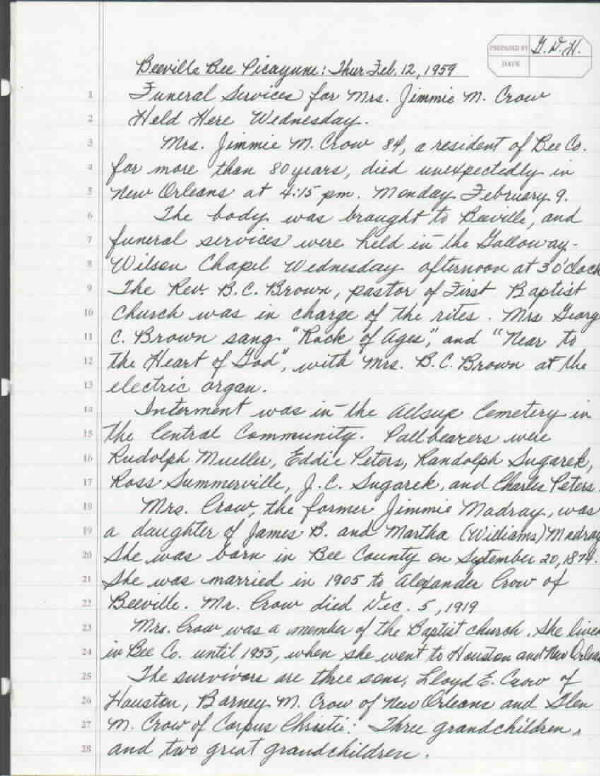 PREPARED BY G. D. H.
DATE
Beeville Bee Picayune: Thur Feb. 12, 1959
1 Funeral Services for Mrs. Jimmie M. Crow
2 Held Here Wednesday.
3 Mrs. Jimmie M. Crow 84, a resident of Bee Co.
4 for more than 80 years, died unexpectedly in
5 New Orleans at 4:15 pm. Monday February 9.
6 The body was brought to Beeville, and
7 funeral services were held in the Galloway-
8 Wilson Chapel Wednesday afternoon at 3 o'clock
9 The Rev. B.C. Brown, pastor of First Baptist
10 church was in charge of the rites. Mrs Georg
11 C. Brown sang "Rock of Ages", and "Near to
12 the Heart of God", with Mrs. B.C. Brown at the
13 electric organ.
14 Interment was in the Allsup Cemetery in
15 the Central Community. Pallbearers were
16 Rudolph Mueller, Eddie Peters, Randolph Sugarek,
17 Ross Summerville, J.C. Sugarek, and Charles Peters.
18 Mrs. Crow, the former Jimmie Madray, was
19 a daughter of James B. and Martha (Williams) Madray
20 She was born in Bee County on September 20, 1874.
21 She was married in 1905 to Alexander Crow of
22 Beeville. Mr. Crow died Dec. 5, 1919
23 Mrs. Crow was a member of the Baptist church. She lived
24 in Bee Co. until 1955, when she went to Houston and New Orleans
25 The survivors are three sons, Lloyd E. Crow of
26 Houston, Barney M. Crow of New Orleans and Glen
27 M. Crow of Corpus Christi. Three grandchildren,
28 and two great grandchildren.